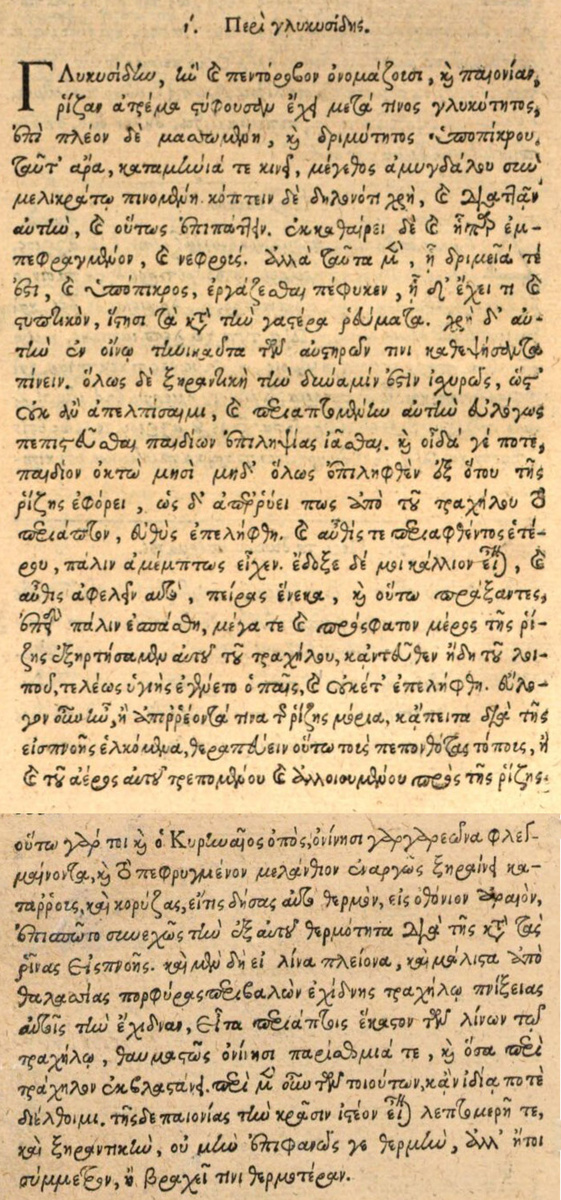 ι΄. Περὶ γλυκυσίδης.
Γλυκυσίδην, ἣν καὶ πεντόροβον ὀνομάζουσι, καὶ παιονίαν,
ῥίζαν ἀτρέμα στύφουσαν ἔχει μετά τινος γλυκύτητος,
ἐπὶ πλέον δὲ μασωμένη, καὶ δριμύτητος ὑποπίκρου.
ταῦτ' ἄρα, καταμήνιά τε κινεῖ, μέγεθος ἀμυγδάλου σὺν
μελικράτῳ πινομένη. κόπτειν δὲ δηλονότι χρὴ, καὶ διαττᾶν
αὐτὴν, καὶ οὕτως ἐπιπάττειν. ἐκκαθαίρει δὲ καὶ ἧπαρ ἐμ-
πεφραγμένον, καὶ νεφρούς. ἀλλὰ ταῦτα μὲν, ᾗ δριμεῖά τέ
ἐστι, καὶ ὑπόπικρος, ἐργάζεσθαι πέφυκεν, ᾗ δ' ἔχει τι καὶ
στυπτικὸν, ἵστησι τὰ κατὰ τὴν γαστέρα ῥεύματα. χρὴ δ' αὐ-
τὴν ἐν οἴνῳ τηνικαῦτα τῶν αὐστηρῶν τινι καθεψήσαντα
πίνειν. ὅλως δὲ ξηραντικὴ τὴν δύναμίν ἐστιν ἰχυρῶς, ὥστ'
οὐκ ἂν ἀπελπίσαιμι, καὶ περιαπτομένην αὐτὴν εὐλόγως
πεπιστεῦσθαι παιδίων ἐπιληψίας ἰᾶσθαι. καὶ οἶδά γέ ποτε,
παιδίον ὀκτὼ μησὶ μηδ' ὅλως ἐπιληφθὲν ἐξ ὅτου τῆς
ῥίζης ἐφόρει, ὡς δ' ἀπεῤῥύει πως ἀπὸ τοῦ τραχήλου τὸ
περίαπτον, εὐθὺς ἐπελήφθη. καὶ αὖθίς τε περιαφθέντος ἑτέ-
ρου, πάλιν ἀμέμπτως εἶχεν. ἔδοξε δέ μοι κάλλιον εἶναι, καὶ
αὖθις ἀφελεῖν αὐτὸ, πείρας ἕνεκα, καὶ οὕτω πράξαντες,
ἐπεὶ πάλιν ἐσπάσθη, μέγα τε καὶ πρόσφατον μέρος τῆς ῥί-
ζης ἐξηρτήσαμεν αὐτοῦ τοῦ τραχήλου, κἀντεῦθεν ἤδη τοῦ λοι-
ποῦ, τελέως ὑγιὴς ἐγένετο ὁ παῖς, καὶ οὐκέτ' ἐπελήφθη. εὔλο-
γον οὖν ἦν, ἢ ἀποῤῥέοντά τινα τῆς ῥίζης μόρια, κἄπειτα διὰ τῆς
εἰσπνοῆς ἑλκόμενα, θεραπεύειν οὕτω τοὺς πεπονθότας τόπους, ἢ
καὶ τοῦ ἀέρος αὐτοῦ τρεπομένου καὶ ἀλλοιουμένου πρὸς τῆς ῥίζης.
οὕτω γάρ τοι καὶ ὁ Κυρηναῖος ὀπὸς, ὀνίνησι γαργαρεῶνα φλεγ-
μαίνοντα, καὶ τὸ πεφρυγμένον μελάνθιον ἐναργῶς ξηραίνει κα-
τάῤῥους, καὶ κορύζας, εἴ τις δήσας αὐτὸ θερμὸν, εἰς ὀθόνιον ἀραιὸν,
ἐπισπῷτο συνεχῶς τὴν ἐξ αὐτοῦ θερμότητα διὰ τῆς κατὰ τὰς
ῥῖνας εἰσπνοῆς. καὶ μὲν δὴ εἰ λίνα πλείονα, καὶ μάλιστα ἀπὸ
θαλασσίας πορφύρας περιβαλὼν ἐχίδνης τραχήλῳ πνίξειας
αὐτοῖς τὴν ἔχιδναν, εἶτα περιάπτοις ἕκαστον τῶν λίνων τῷ
τραχήλῳ, θαυμαστῶς ὀνίνησι παρίσθμιά τε, καὶ ὅσα περὶ
τράχηλον ἐκβλαστάνει. περὶ μὲν οὖν τῶν τοιούτων, κἂν ἰδίᾳ ποτὲ
διέλθοιμι. τῆς δὲ παιονίας τὴν κρᾶσιν ἰστέον εἶναι λεπτομερῆ τε,
καὶ ξηραντικὴν, οὐ μὴν ἐπιφανῶς γε θερμὴν, ἀλλ' ἤτοι
σύμμετρον, ἢ βραχεῖ τινι θερμοτέραν.